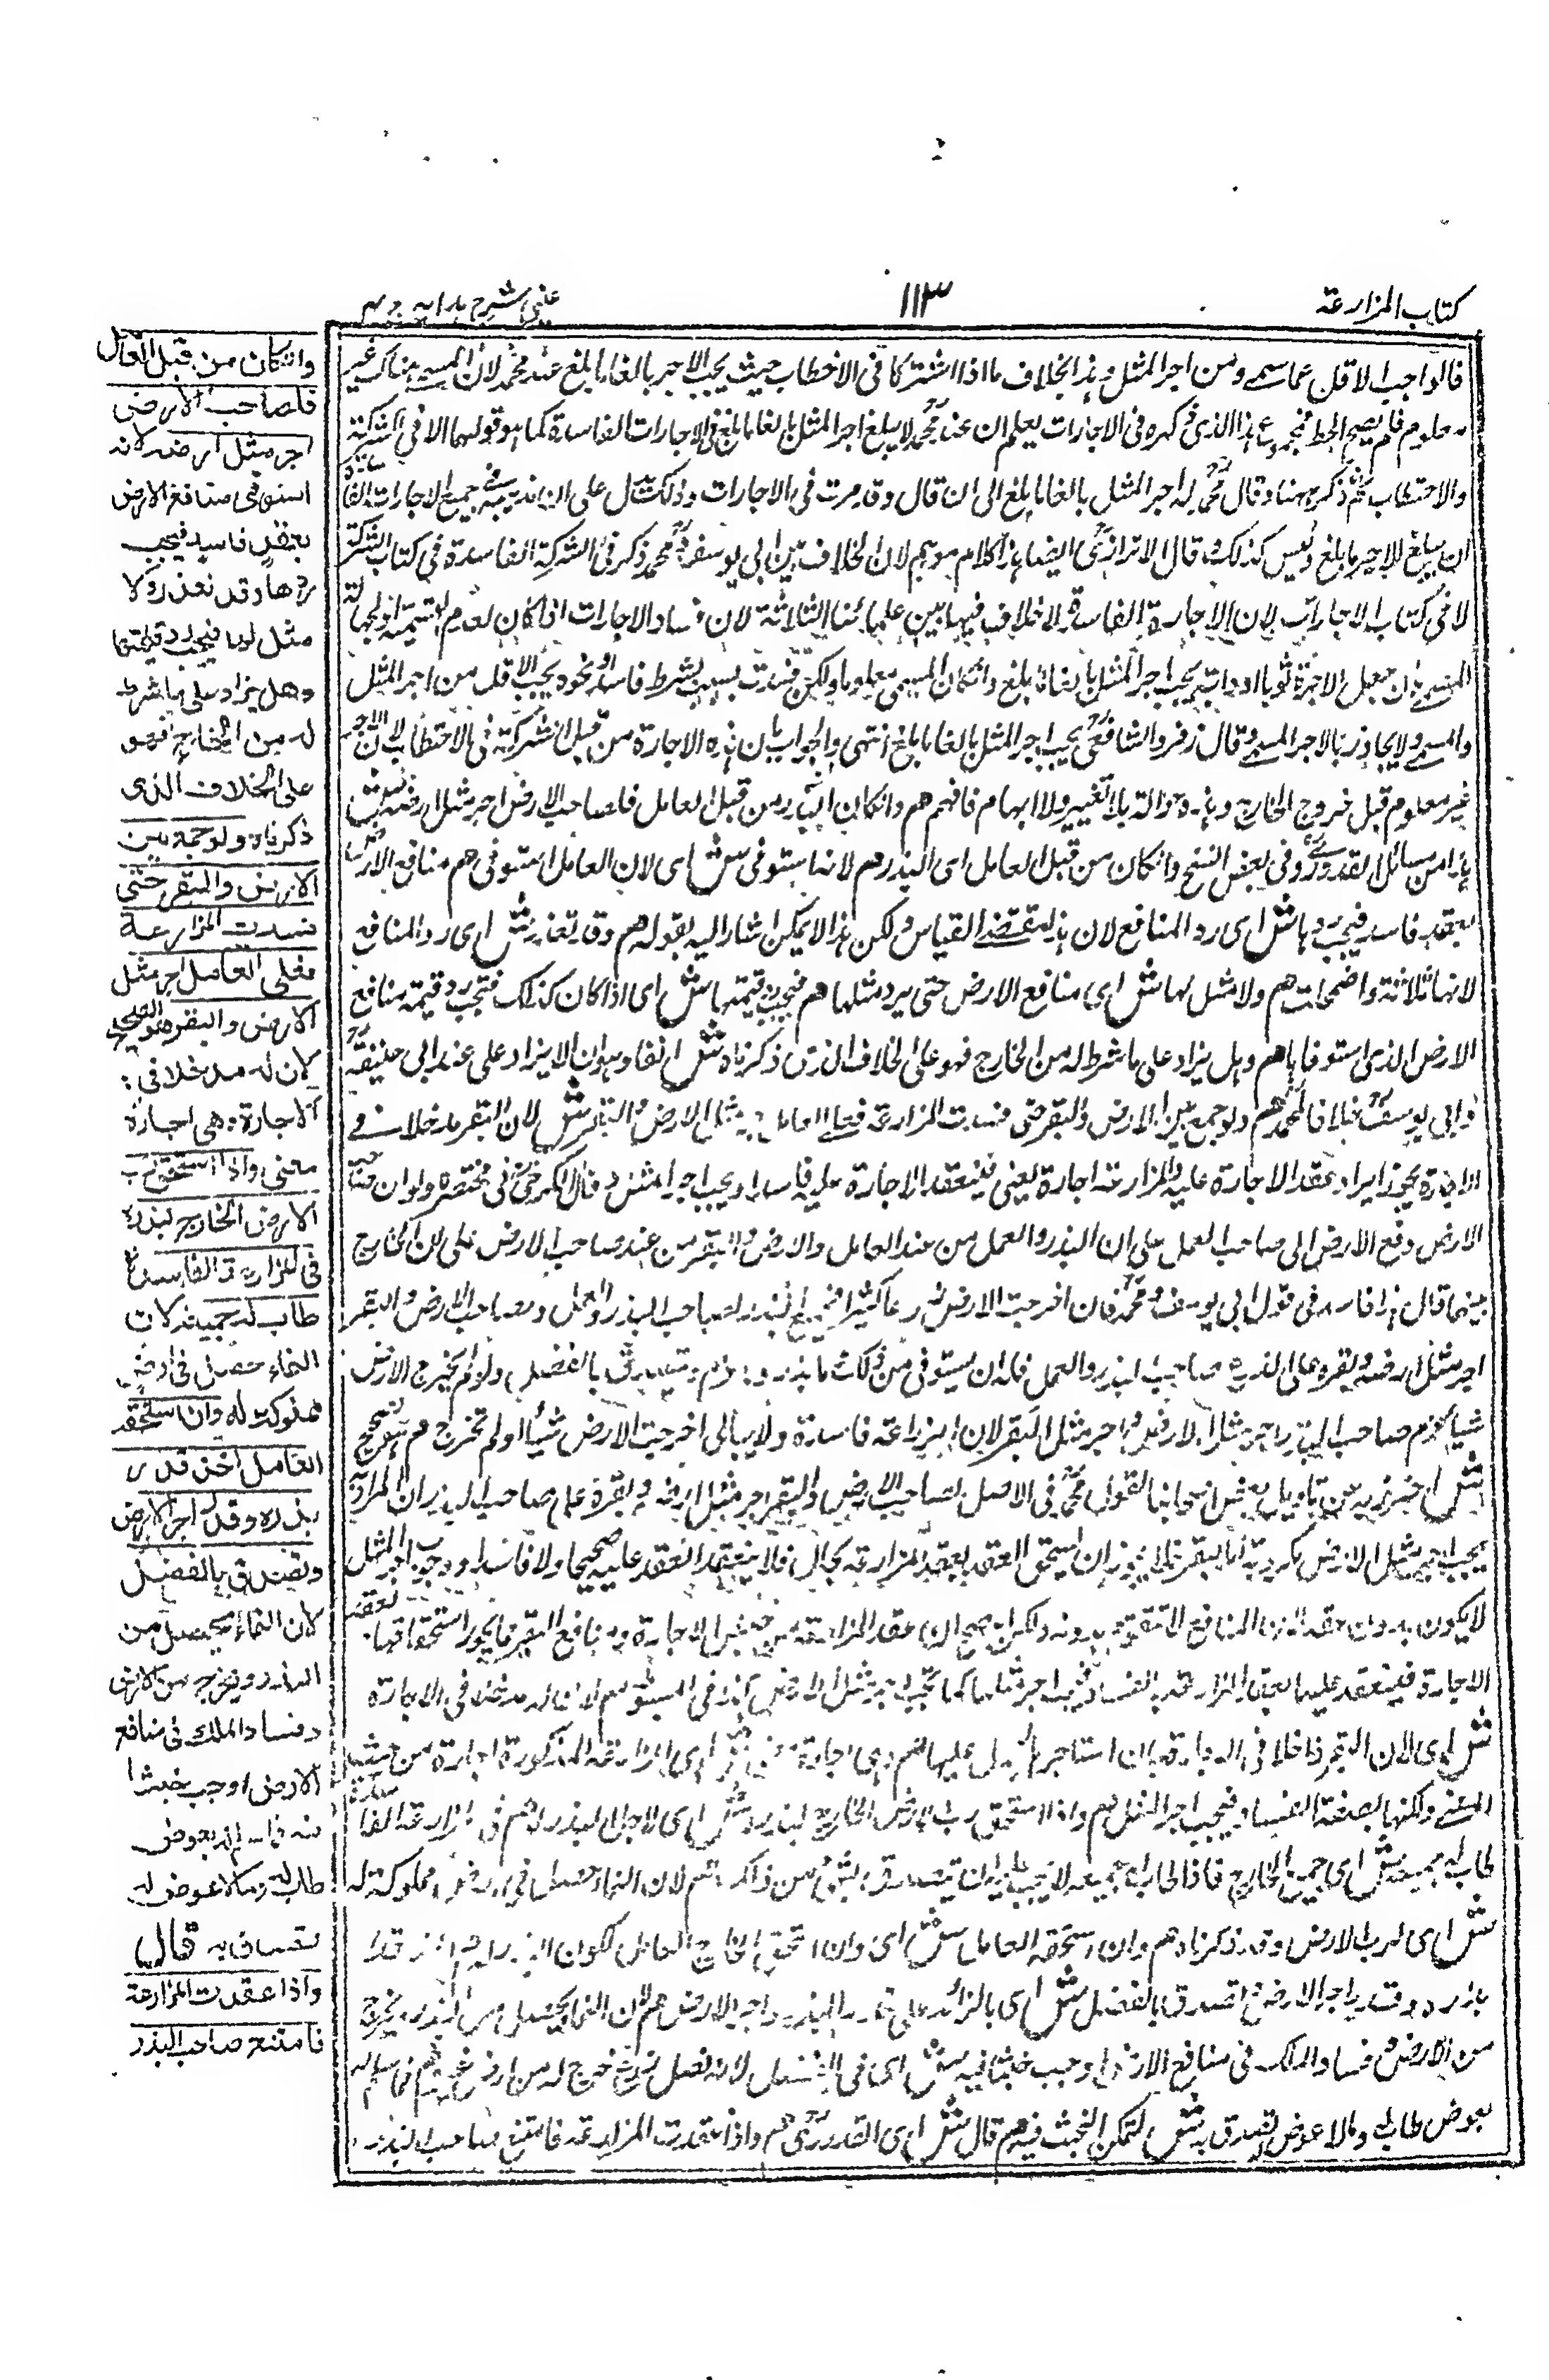 كتاب المزارعة
١١٣
عيني شرح هداية ج ٤
فالواجب الاقل مما سمى ومن اجر المثل وهذا بخلاف ما اذا اشتركا فى الاحتطاب حيث يجب الاجر بالغا ما بلغ عند محمد لان المسمى هناك غير
معلوم فلم يصح الحط فمجرد هذا الذى ذكره فى الاجارات يعلم ان عند محمد لا يبلغ اجر المثل بالغا ما بلغ فى الاجارات الفاسدة كما هو قولهما الا فى الشركة
والاحتطاب ثم ذكره هنا وقال محمد له اجر المثل بالغا ما بلغ الى ان قال وقد مرت فى الاجارات وذلك يدل على ان مذهبه فى جميع الاجارات الفاسدة
ان يبلغ الاجر ما بلغ وليس كذلك قال الاترازى ايضا هذا كلام موهم لان الخلاف بين ابى يوسف ومحمد ذكر فى الشركة الفاسدة فى كتاب الشركة
لا فى كتاب الاجارات لان الاجارة الفاسدة لا خلاف فيها بين علمائنا الثلاثة لان فساد الاجارات اذا كان لعدم التسمية او لجهالة
المسمى بان جعل الاجرة ثوبا او دابة يجب اجر المثل بالغا ما بلغ وان كان المسمى معلوما ولكن فسدت بسبب شرط فاسد ونحوه يجب الاقل من اجر المثل
والمسمى ولا يجاوز بالاجر المسمى وقال زفر والشافعى يجب اجر المثل بالغا ما بلغ انتهى والجواب بان هذه الاجارة من قبيل الشركة فى الاحتطاب لان الاجر
غير معلوم قبل خروج الخارج وهذه حوالة بلا تغيير ولا ابهام فافهم هم وان كان البذر من قبل العامل فلصاحب الارض اجر مثل ارضه ش
هذا من مسائل القدورى وفى بعض النسخ وان كان من قبل العامل اى البذر هم لانه استوفى ش اى لان العامل استوفى هم منافع الارض
بعقد فاسد فيجب ردها ش اى رد المنافع لان هذا يقتضى القياس ولكن هذا لا يمكن اشار اليه بقوله هم وقد تعذر ش اى رد المنافع
لانها تلاشت واضمحلت هم ولا مثل لها ش اى منافع الارض حتى يرد مثلها هم فيجب رد قيمتها ش اى اذا كان كذلك فتجب رد قيمة منافع
الارض الذى استوفاها هم وهل يزاد على ما شرط له من الخارج فهو على الخلاف الذى ذكرناه ش انفا وهو ان لا يزاد على عند ابى حنيفة
وابى يوسف خلافا لمحمد هم ولو جمع بين الارض والبقر حتى فسدت المزارعة فعلى العامل اجر مثل الارض والبقر ش لان البقر مدخلا فى
الاجارة يجوز ايراد عقد الاجارة عليه والمزارعة اجارة يعنى فينعقد الاجارة عليه فاسدا ويجب اجر المثل وقال الكرخى فى مختصره ولو ان صاحب
الارض دفع الارض الى صاحب العمل على ان البذر والعمل من عند العامل والارض والبقر من عند صاحب الارض على ان الخارج
بينهما قال هذا فاسد فى قول ابى يوسف ومحمد فان اخرجت الارض زرعا كثيرا فجميع البذر لصاحب البذر والعمل ولصاحب الارض والبقر
اجر مثل ارضه وبقره على الذى صاحب البذر والعمل فله ان يستوفى من ذلك ما بذر وغرم ويتصدق بالفضل ولو لم يخرج الارض
شيئا غرم صاحب البذر اجر مثل الارض واجر مثل البقر لان المزارعة فاسدة ولا يبالى اخرجت الارض شيئا او لم تخرج هم هو الصحيح
ش احترز به عن تاويل بعض اصحابنا لقول محمد فى الاصل لصاحب الارض والبقر اجر مثل ارضه وبقره على صاحب البذر ان المراد به
يجب اجر مثل الارض مكروبة اما البقر فلا يجوز ان يستحق العقد بعقد المزارعة بحال فلا ينعقد العقد عليه صحيحا ولا فاسدا ووجوب اجر المثل
لا يكون بدون عقد لان المنافع لا تتقوم بدونه ولكن الاصح ان عقد المزارعة من جنس الاجارة ومنافع البقر مما يجوز استحقاقها بعقد
الاجارة فينعقد عليها بعقد المزارعة بالفساد فيجب اجر مثلها كما يجب اجر مثل الارض هم لان له مدخلا فى الاجارة
ش اى لان البقر داخلا فى الاجارة بان استاجر هم وهى اجارة معنى ش اى المزارعة المذكورة اجارة من حيث
المعنى ولكنها بصفة الفساد فيجب اجر المثل هم واذا استحق رب الارض الخارج لبذره ش اى لاجل البذر هم فى المزارعة الفاسدة
طاب له جميعه ش اى جميع الخارج فاذا طاب له جميعه لا يجب عليه ان يتصدق بشئ من ذلك هم لان النماء حصل فى ارض مملوكة له
ش اى لرب الارض وقد ذكرناه هم وان استحقه العامل ش اى وان استحق الخارج العامل لكون البذر له هم اخذ قدر
بذره وقدر اجر الارض وتصدق بالفضل ش اى بالزائد على قدر البذر واجر الارض هم لان النماء يحصل من البذر ويخرج
من الارض وفساد الملك فى منافع الارض اوجب خبثا فيه ش اى فى الفضل لانه فضل خرج له من ارض غيره هم فما سلم له
بعوض طاب له وما لا عوض له تصدق به ش لتمكن الخبث فيه هم قال ش اى القدورى هم واذا عقدت المزارعة فامتنع صاحب البذر
وان كان من قبل العامل
فلصاحب الارض
اجر مثل ارضه لانه
استوفى منافع الارض
بعقد فاسد فيجب
ردها وقد تعذر ولا
مثل لها فيجب رد قيمتها
وهل يزاد على ما شرط
له من الخارج فهو
على الخلاف الذى
ذكرناه ولو جمع بين
الارض والبقر حتى
فسدت المزارعة
فعلى العامل اجر مثل
الارض والبقر هو الصحيح
لان له مدخلا فى
الاجارة وهى اجارة
معنى واذا استحق رب
الارض الخارج لبذره
فى المزارعة الفاسدة
طاب له جميعه لان
النماء حصل فى ارض
مملوكة له وان استحقه
العامل اخذ قدر
بذره وقدر اجر الارض
وتصدق بالفضل
لان النماء يحصل من
البذر ويخرج من الارض
وفساد الملك فى منافع
الارض اوجب خبثا
فيه فما سلم له بعوض
طاب له وما لا عوض له
تصدق به قال
واذا عقدت المزارعة
فامتنع صاحب البذر